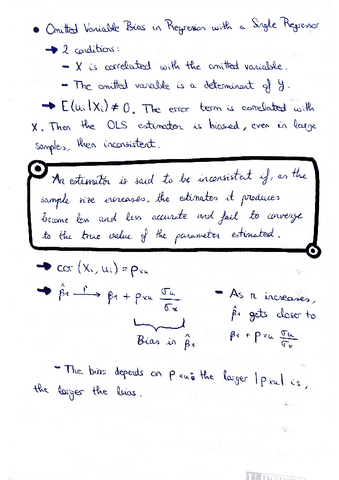 • Omitted Variable Bias in Regression with a Single Regressor
→ 2 conditions:
- X is correlated with the omitted variable.
- The omitted variable is a determinant of Y.
→ E(ui|Xi) ≠ 0. The error term is correlated with
X. Then the OLS estimator is biased, even in large
samples, then inconsistent.
An estimator is said to be inconsistent if, as the
sample size increases, the estimates it produces
become less and less accurate and fail to converge
to the true value of the parameter estimated.
→ cor (Xi, ui) = ρxu
→ β̂1 →p β1 + ρxu σu/σx
Bias in β̂1
- As n increases,
β̂1 gets closer to
β1 + ρxu σu/σx
- The bias depends on ρxu: the larger |ρxu| is,
the larger the bias.